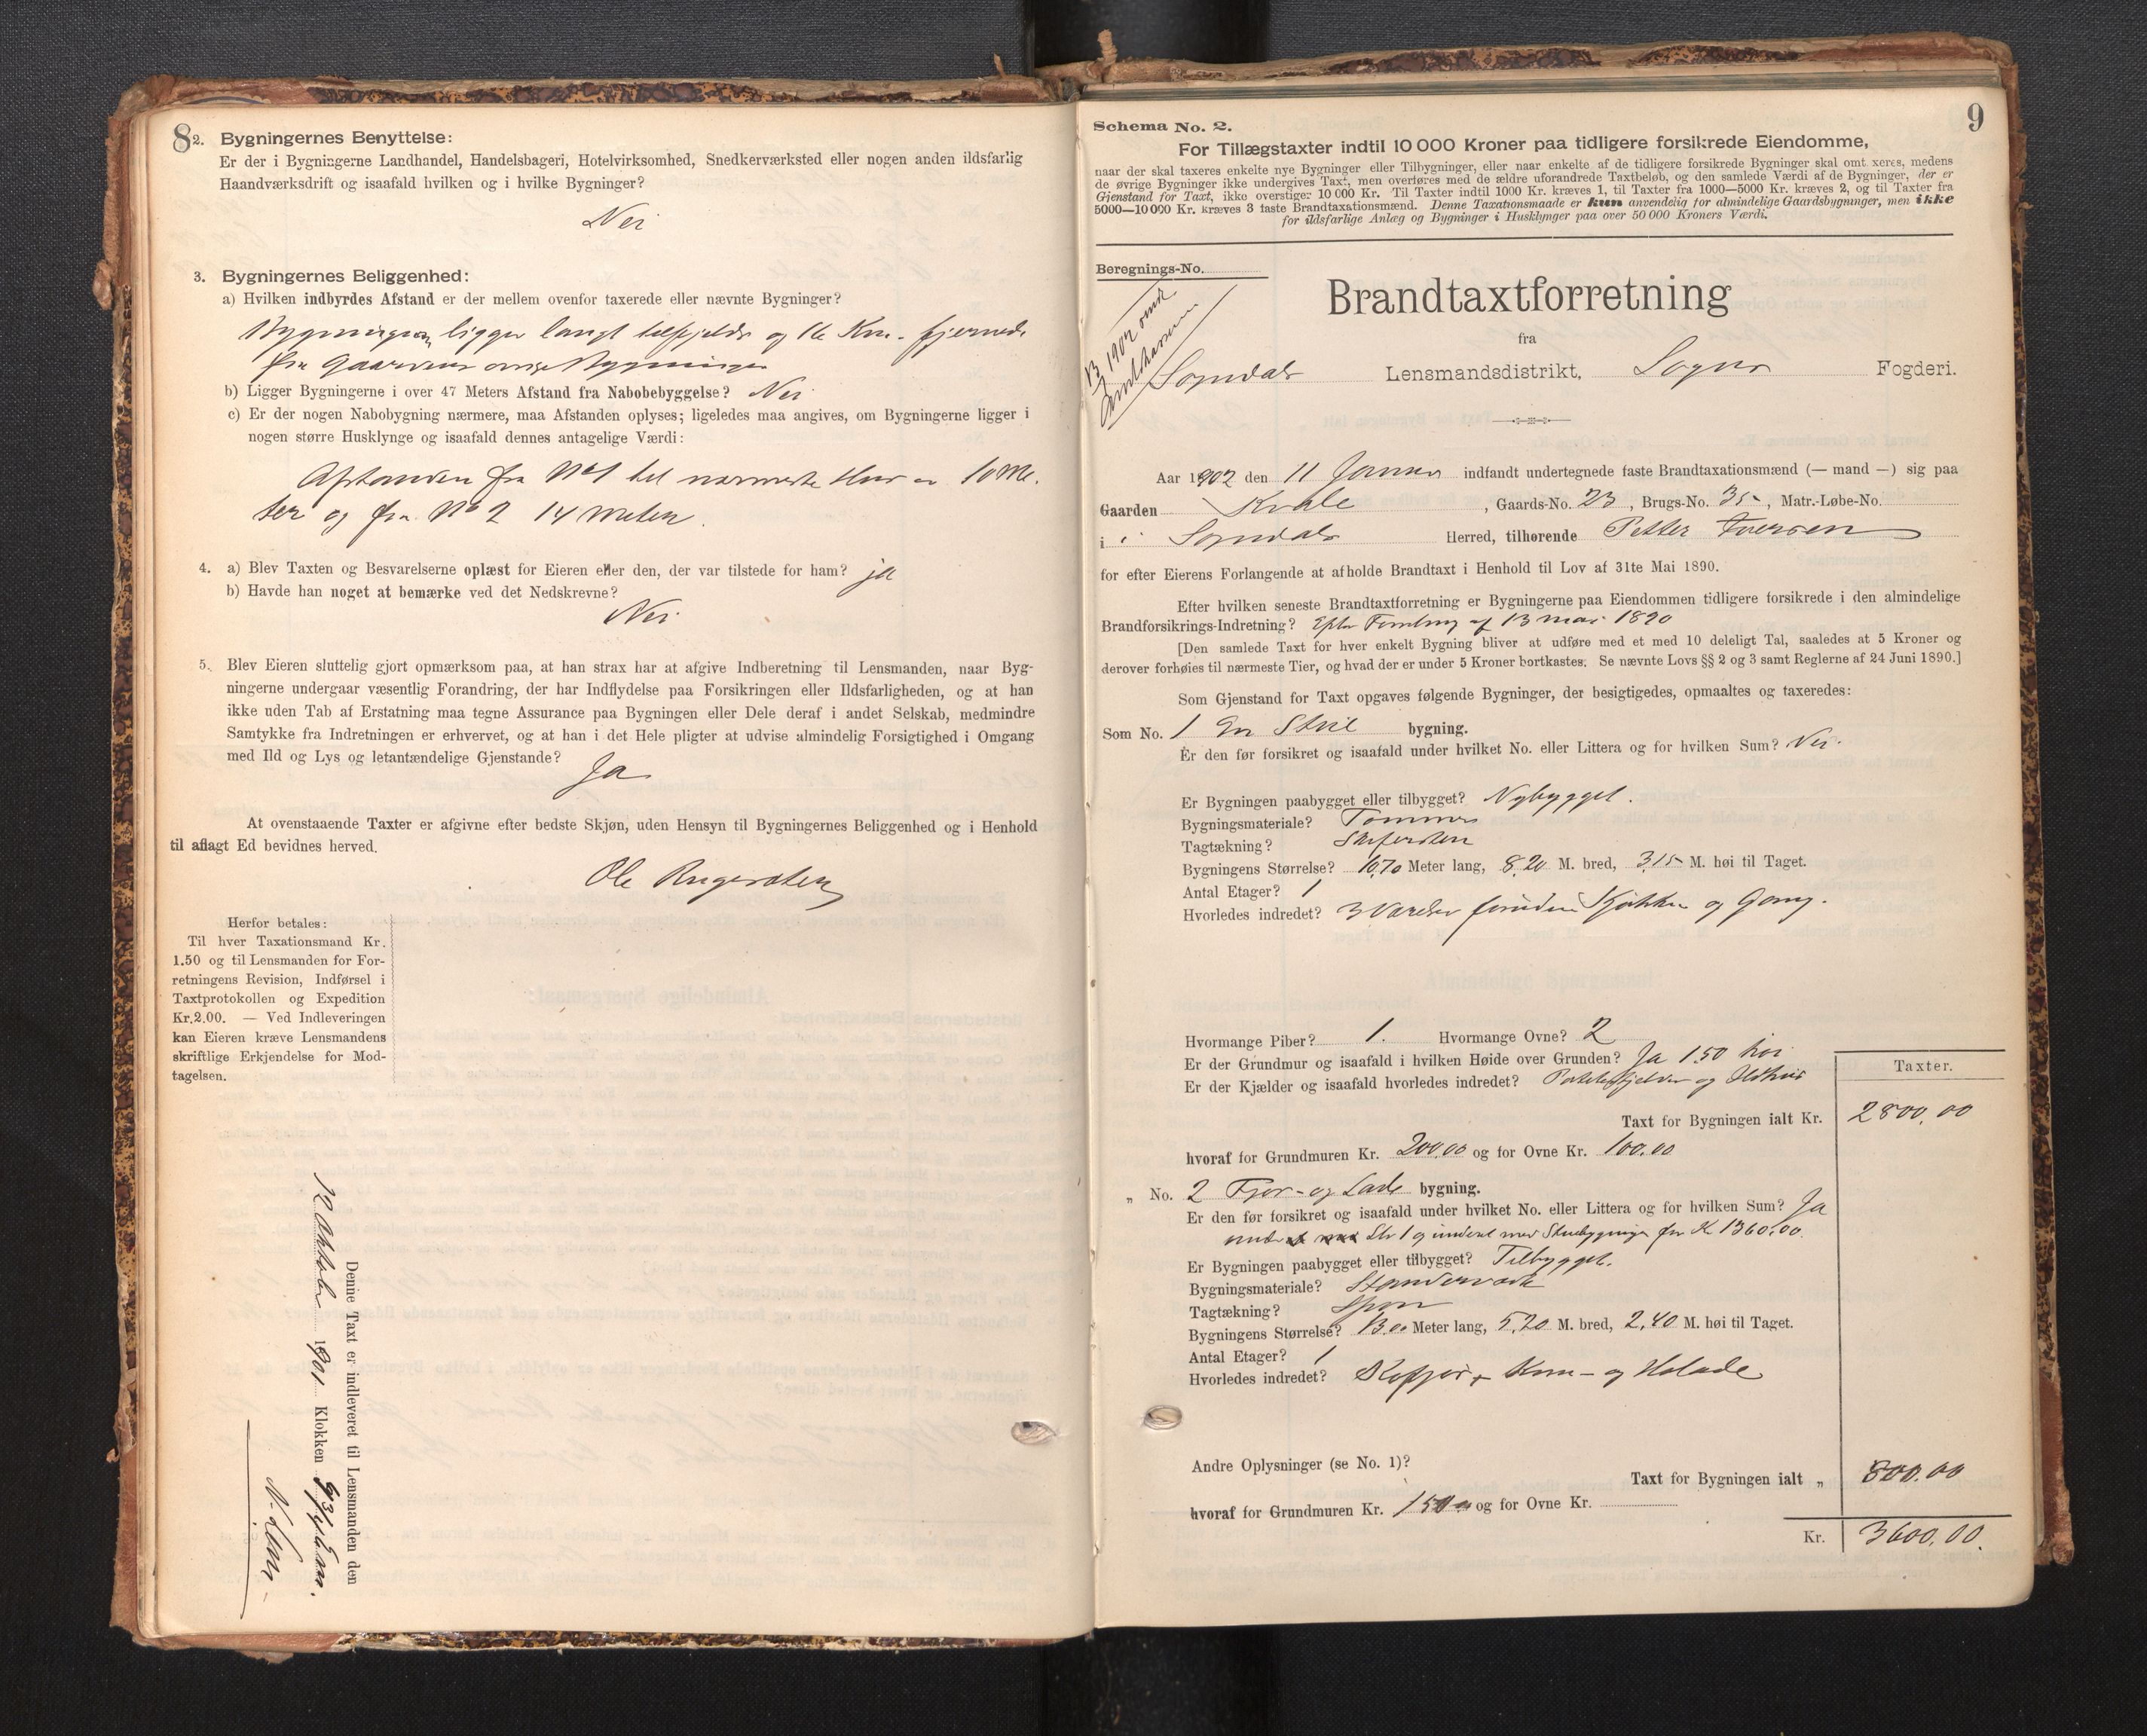 8
2. Bygningernes Benyttelse:
Er der i Bygningerne Landhandel, Handelsbageri, Hotelvirksomhed, Snedkerværksted eller nogen anden ildsfarlig
Haandværksdrift og isaafald hvilken og i hvilke Bygninger?
Nei
3. Bygningernes Beliggenhed:
a) Hvilken indbyrdes Afstand er der mellem ovenfor taxerede eller nævnte Bygninger?
Bygningen ligger langt tilfjelds og 16 Km. fjernede
fra Gaardens øvrige Bygninger
b) Ligger Bygningerne i over 47 Meters Afstand fra Nabobebyggelse? Nei
c) Er der nogen Nabobygning nærmere, maa Afstanden oplyses; ligeledes maa angives, om Bygningerne ligger i
nogen større Husklynge og isaafald dennes antagelige Værdi:
Afstanden fra No 1 til nærmeste Hus er 10 Me-
ter og fra No 2 14 meter.
4. a) Blev Taxten og Besvarelserne oplæst for Eieren eller den, der var tilstede for ham? ja
b) Havde han noget at bemærke ved det Nedskrevne?
Nei
5. Blev Eieren sluttelig gjort opmærksom paa, at han strax har at afgive Indberetning til Lensmanden, naar Byg-
ningerne undergaar væsentlig Forandring, der har Indflydelse paa Forsikringen eller Ildsfarligheden, og at han
ikke uden Tab af Erstatning maa tegne Assurance paa Bygningen eller Dele deraf i andet Selskab, medmindre
Samtykke fra Indretningen er erhvervet, og at han i det Hele pligter at udvise almindelig Forsigtighed i Omgang
med Ild og Lys og letantændelige Gjenstande?
Ja
At ovenstaaende Taxter er afgivne efter bedste Skjøn, uden Hensyn til Bygningernes Beliggenhed og i Henhold
til aflagt Ed bevidnes herved.
Ole
Herfor betales:
Til hver Taxationsmand Kr.
1.50 og til Lensmanden for For-
retningens Revision, Indførsel i
Taxtprotokollen og Expedition
Kr. 2.00. — Ved Indleveringen
kan Eieren kræve Lensmandens
skriftlige Erkjendelse for Mod-
tagelsen.
Denne Taxt er indleveret til Lensmanden den
12 Oktober 1901 Klokken
9
Schema No. 2.
For Tillægstaxter indtil 10 000 Kroner paa tidligere forsikrede Eiendomme,
naar der skal taxeres enkelte nye Bygninger eller Tilbygninger, eller naar enkelte af de tidligere forsikrede Bygninger skal omt xeres, medens
de øvrige Bygninger ikke undergives Taxt, men overføres med de ældre uforandrede Taxtbeløb, og den samlede Værdi af de Bygninger, der er
Gjenstand for Taxt, ikke overstiger 10 000 Kr. Til Taxter indtil 1000 Kr. kræves 1, til Taxter fra 1000—5000 Kr. kræves 2, og til Taxter fra
5000—10 000 Kr. kræves 3 faste Brandtaxationsmænd. Denne Taxationsmaade er kun anvendelig for almindelige Gaardsbygninger, men ikke
for ildsfarlige Anlæg og Bygninger i Husklynger paa over 50 000 Kroners Værdi.
Beregnings-No.
1902
Brandtaxtforretning
fra
Sogndals Lensmandsdistrikt, Sogns Fogderi.
Aar 1902 den 11 Januar indfandt undertegnede faste Brandtaxationsmænd (— mand —) sig paa
Gaarden Kvåle, Gaards-No. 23, Brugs-No. 35, Matr.-Løbe-No.
i Sogndals Herred, tilhørende Petter Iversen
for efter Eierens Forlangende at afholde Brandtaxt i Henhold til Lov af 31te Mai 1890.
Efter hvilken seneste Brandtaxtforretning er Bygningerne paa Eiendommen tidligere forsikrede i den almindelige
Brandforsikrings-Indretning? Efter Forretning af 13 mai 1890
[Den samlede Taxt for hver enkelt Bygning bliver at udføre med et med 10 deleligt Tal, saaledes at 5 Kroner og
derover forhøies til nærmeste Tier, og hvad der er under 5 Kroner bortkastes. Se nævnte Lovs §§ 2 og 3 samt Reglerne af 24 Juni 1890.]
Som Gjenstand for Taxt opgaves følgende Bygninger, der besigtigedes, opmaaltes og taxeredes:
Som No. 1 En Stue bygning.
Er den før forsikret og isaafald under hvilket No. eller Littera og for hvilken Sum? Nei.
Er Bygningen paabygget eller tilbygget? Nybygget.
Bygningsmateriale? Tømmer
Tagtækning? Skifersten
Bygningens Størrelse? 10,70 Meter lang, 8,20 M. bred, 3,15 M. høi til Taget.
Antal Etager? 1
Hvorledes indredet? 3 Værelser foruden Kjøkken og Gang.
Hvormange Piber? 1. Hvormange Ovne? 2
Er der Grundmur og isaafald i hvilken Høide over Grunden? Ja 1.50 høi
Er der Kjælder og isaafald hvorledes indredet? Potetkjelder og Ildhus
Taxter.
Taxt for Bygningen ialt Kr. 2800,00
hvoraf for Grundmuren Kr. 200,00 og for Ovne Kr. 100,00
„ No. 2 Fjøs- og Lade bygning.
Er den før forsikret og isaafald under hvilket No. eller Littera og for hvilken Sum? Ja
under Litr 1 og inderet med Stuebygningen for Kr 1360,00.
Er Bygningen paabygget eller tilbygget? Tilbygget.
Bygningsmateriale? Standerværk
Tagtækning? Spon
Bygningens Størrelse? 13,00 Meter lang, 5,20 M. bred, 2,40 M. høi til Taget.
Antal Etager? 1
Hvorledes indredet? Kofjøs, Korn- og Hølade
Andre Oplysninger (se No. 1)?
Taxt for Bygningen ialt „ 800,00
hvoraf for Grundmuren Kr. 150,00 og for Ovne Kr.
Kr. 3600,00.